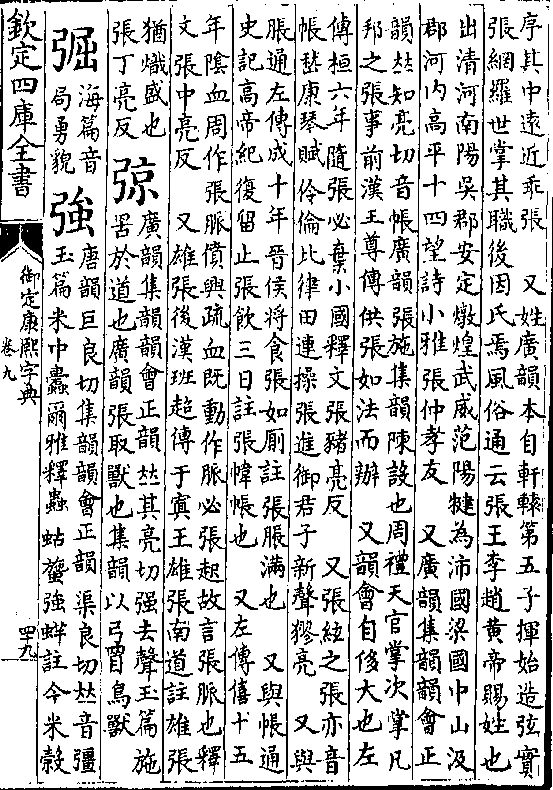 序其中遠近乖張　又姓廣韻本自軒轅第五子揮始造弦實
張網羅世掌其職後因氏焉風俗通云張王李趙黃帝賜姓也
出清河南陽吳郡安定燉煌武威范陽犍為沛國梁國中山汲
郡河內高平十四望詩小雅張仲孝友　又廣韻集韻韻會正
韻𠀤知亮切音帳廣韻張施集韻陳設也周禮天官掌次掌凡
邦之張事前漢王尊傳供張如法而辦　又韻會自侈大也左
傳桓六年隨張必棄小國釋文張豬亮反　又張絃之張亦音
帳嵆康琴賦伶倫比律田連操張進御君子新聲憀亮　又與
脹通左傳成十年晉侯將食張如廁註張脹滿也　又與帳通
史記高帝紀復留止張飲三日註張幃帳也　又左傳僖十五
年陰血周作張脈僨興疏血既動作脈必張起故言張脈也釋
文張中亮反　又雄張後漢班超傳于窴王雄張南道註雄張
猶熾盛也
張丁亮反
弶
廣韻集韻韻會正韻𠀤其亮切强去聲玉篇施
罟於道也廣韻張取獸也集韻以弓罥鳥獸
弡
海篇音
局勇貌
強
唐韻巨良切集韻韻會正韻渠良切𠀤音彊
玉篇米中蠹爾雅釋蟲蛄䗐強蝆註今米榖
欽定四庫全書
御定康熙字典
卷九
四九